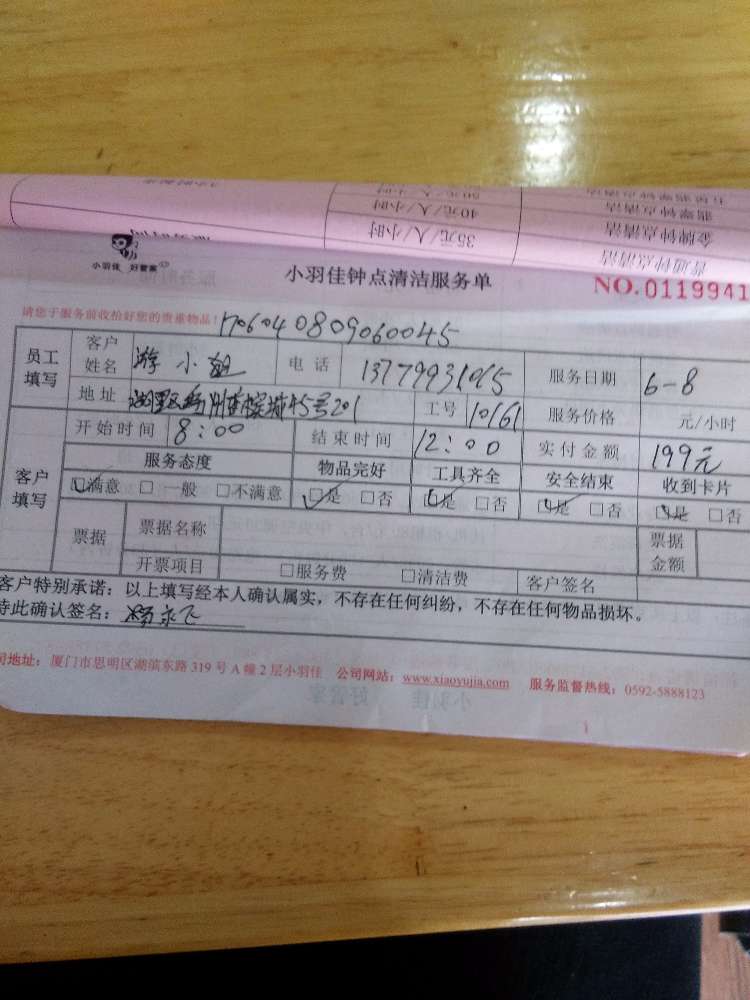 50元/人/小时 五星翡翠钟点清洁
40元/人/小时 金牌钟点清洁
35元/人/小时 普通钟点清洁
小羽佳 好管家
小羽佳钟点清洁服务单
NO.0119941
请您于服务前收拾好您的贵重物品!
1706040809060045
员工填写 客户姓名 游小姐 电话 13779931015 服务日期 6-8
地址 湖里区 45号201 工号 10161 服务价格 元/小时
客户填写 开始时间 8:00 结束时间 12:00 实付金额 199元
服务态度 物品完好 工具齐全 安全结束 收到卡片
☑满意 □一般 □不满意 ☑是 □否 ☑是 □否 ☑是 □否 ☑是 □否
票据 票据名称 票据金额
开票项目 □服务费 □清洁费 客户签名
客户特别承诺:以上填写经本人确认属实,不存在任何纠纷,不存在任何物品损坏。
特此确认签名:
司地址:厦门市思明区湖滨东路 319 号 A 幢 2 层小羽佳 公司网站:www.xiaoyujia.com 服务监督热线:0592-5888123
小羽佳 好管家